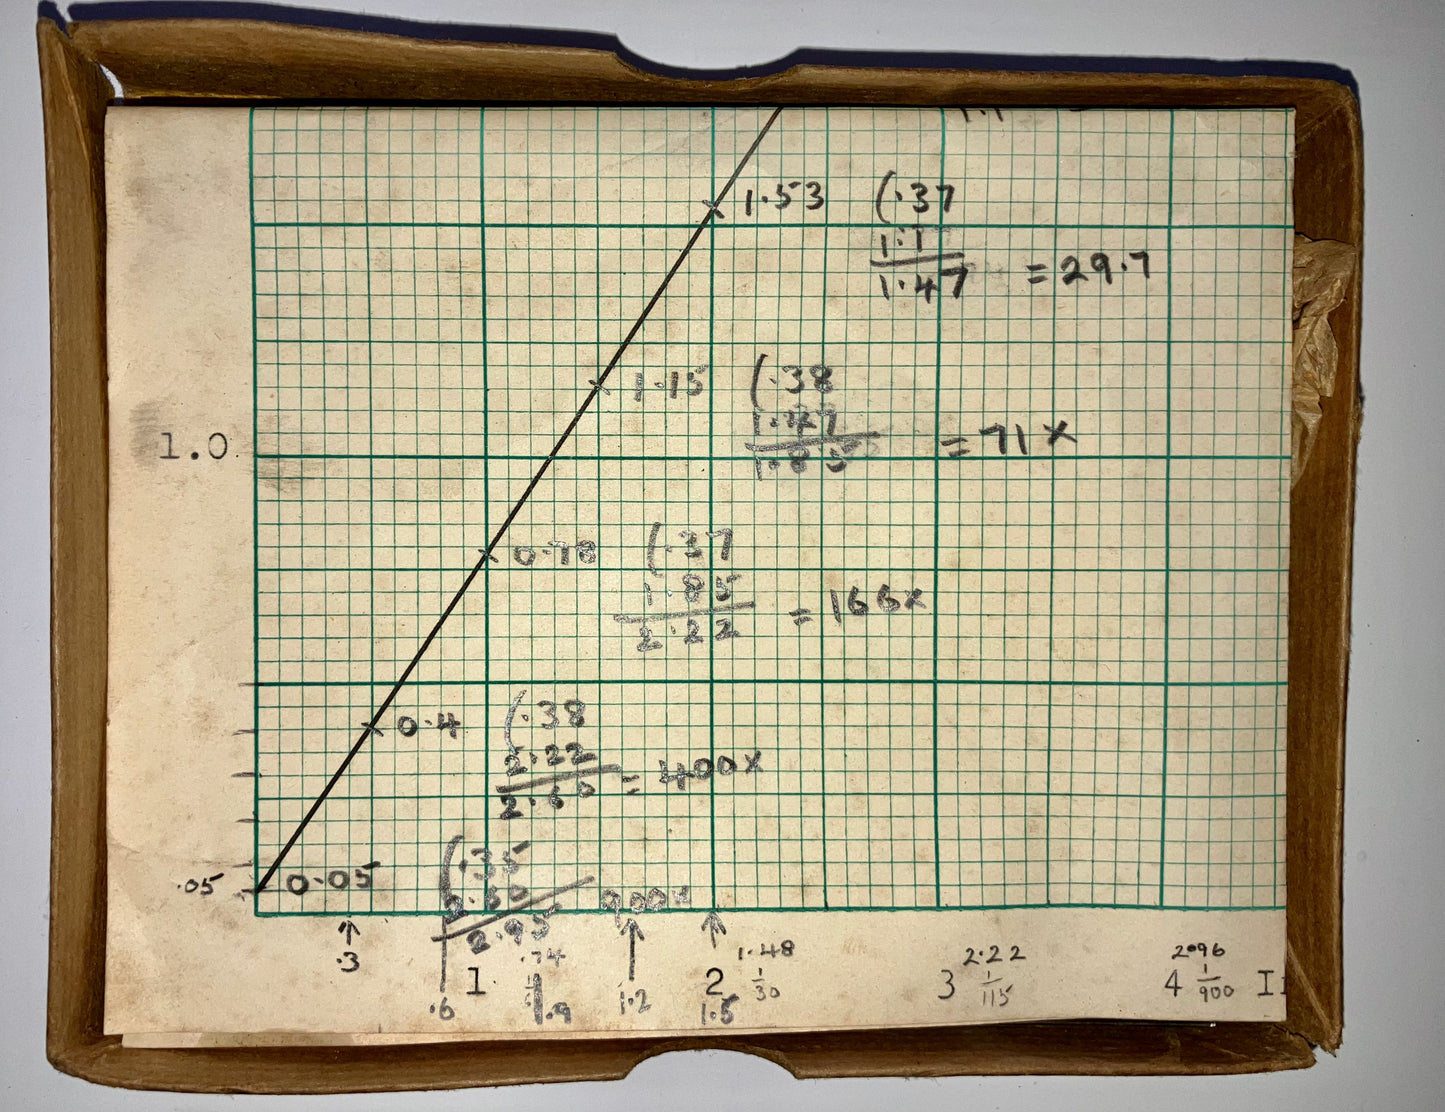 1.1
1.53 (.37
1.1
1.47 = 29.7
1.15 (.38
1.47
1.85 = 71x
1.0
0.78 (.37
1.85
2.22 = 166x
0.4 (.38
2.22
2.60 = 400x
.05 0.05 (.35
2.60
2.95 900x
.3 .6 1 .74 .9 1.2 2 1.5 1.48 1/30 3 2.22 1/115 4 2.96 1/900